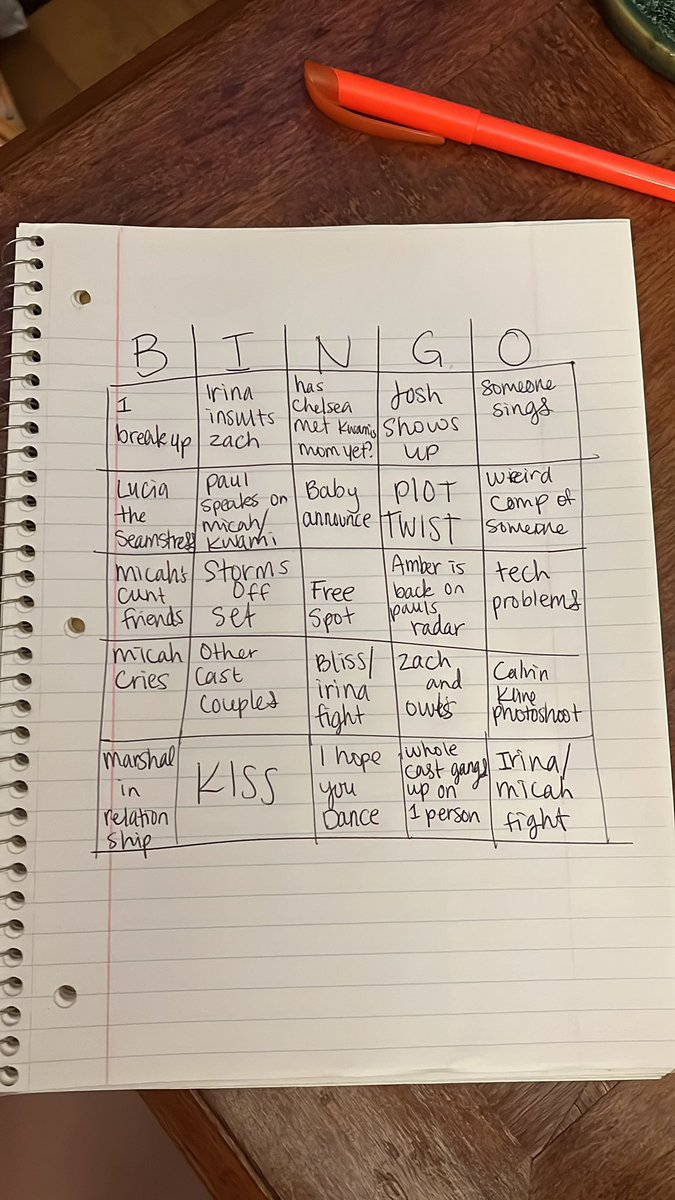 B I N G O
1
break up
Irina
insults
zach
has
Chelsea
met Kwamis
mom yet?
Josh
shows
up
someone
sings
Lucia
the
Seamstress
paul
speaks on
micah/
Kwami
Baby
announce
PLOT
TWIST
weird
comp of
someone
micah's
cunt
friends
Storms
Off
set
Free
Spot
Amber is
back on
pauls
radar
tech
problems
micah
Cries
Other
Cast
Couples
Bliss/
irina
fight
zach
and
owls
Calvin
Kline
photoshoot
marshal
in
relation
ship
KISS
I hope
you
Dance
whole
cast gangs
up on
1 person
Irina/
micah
fight